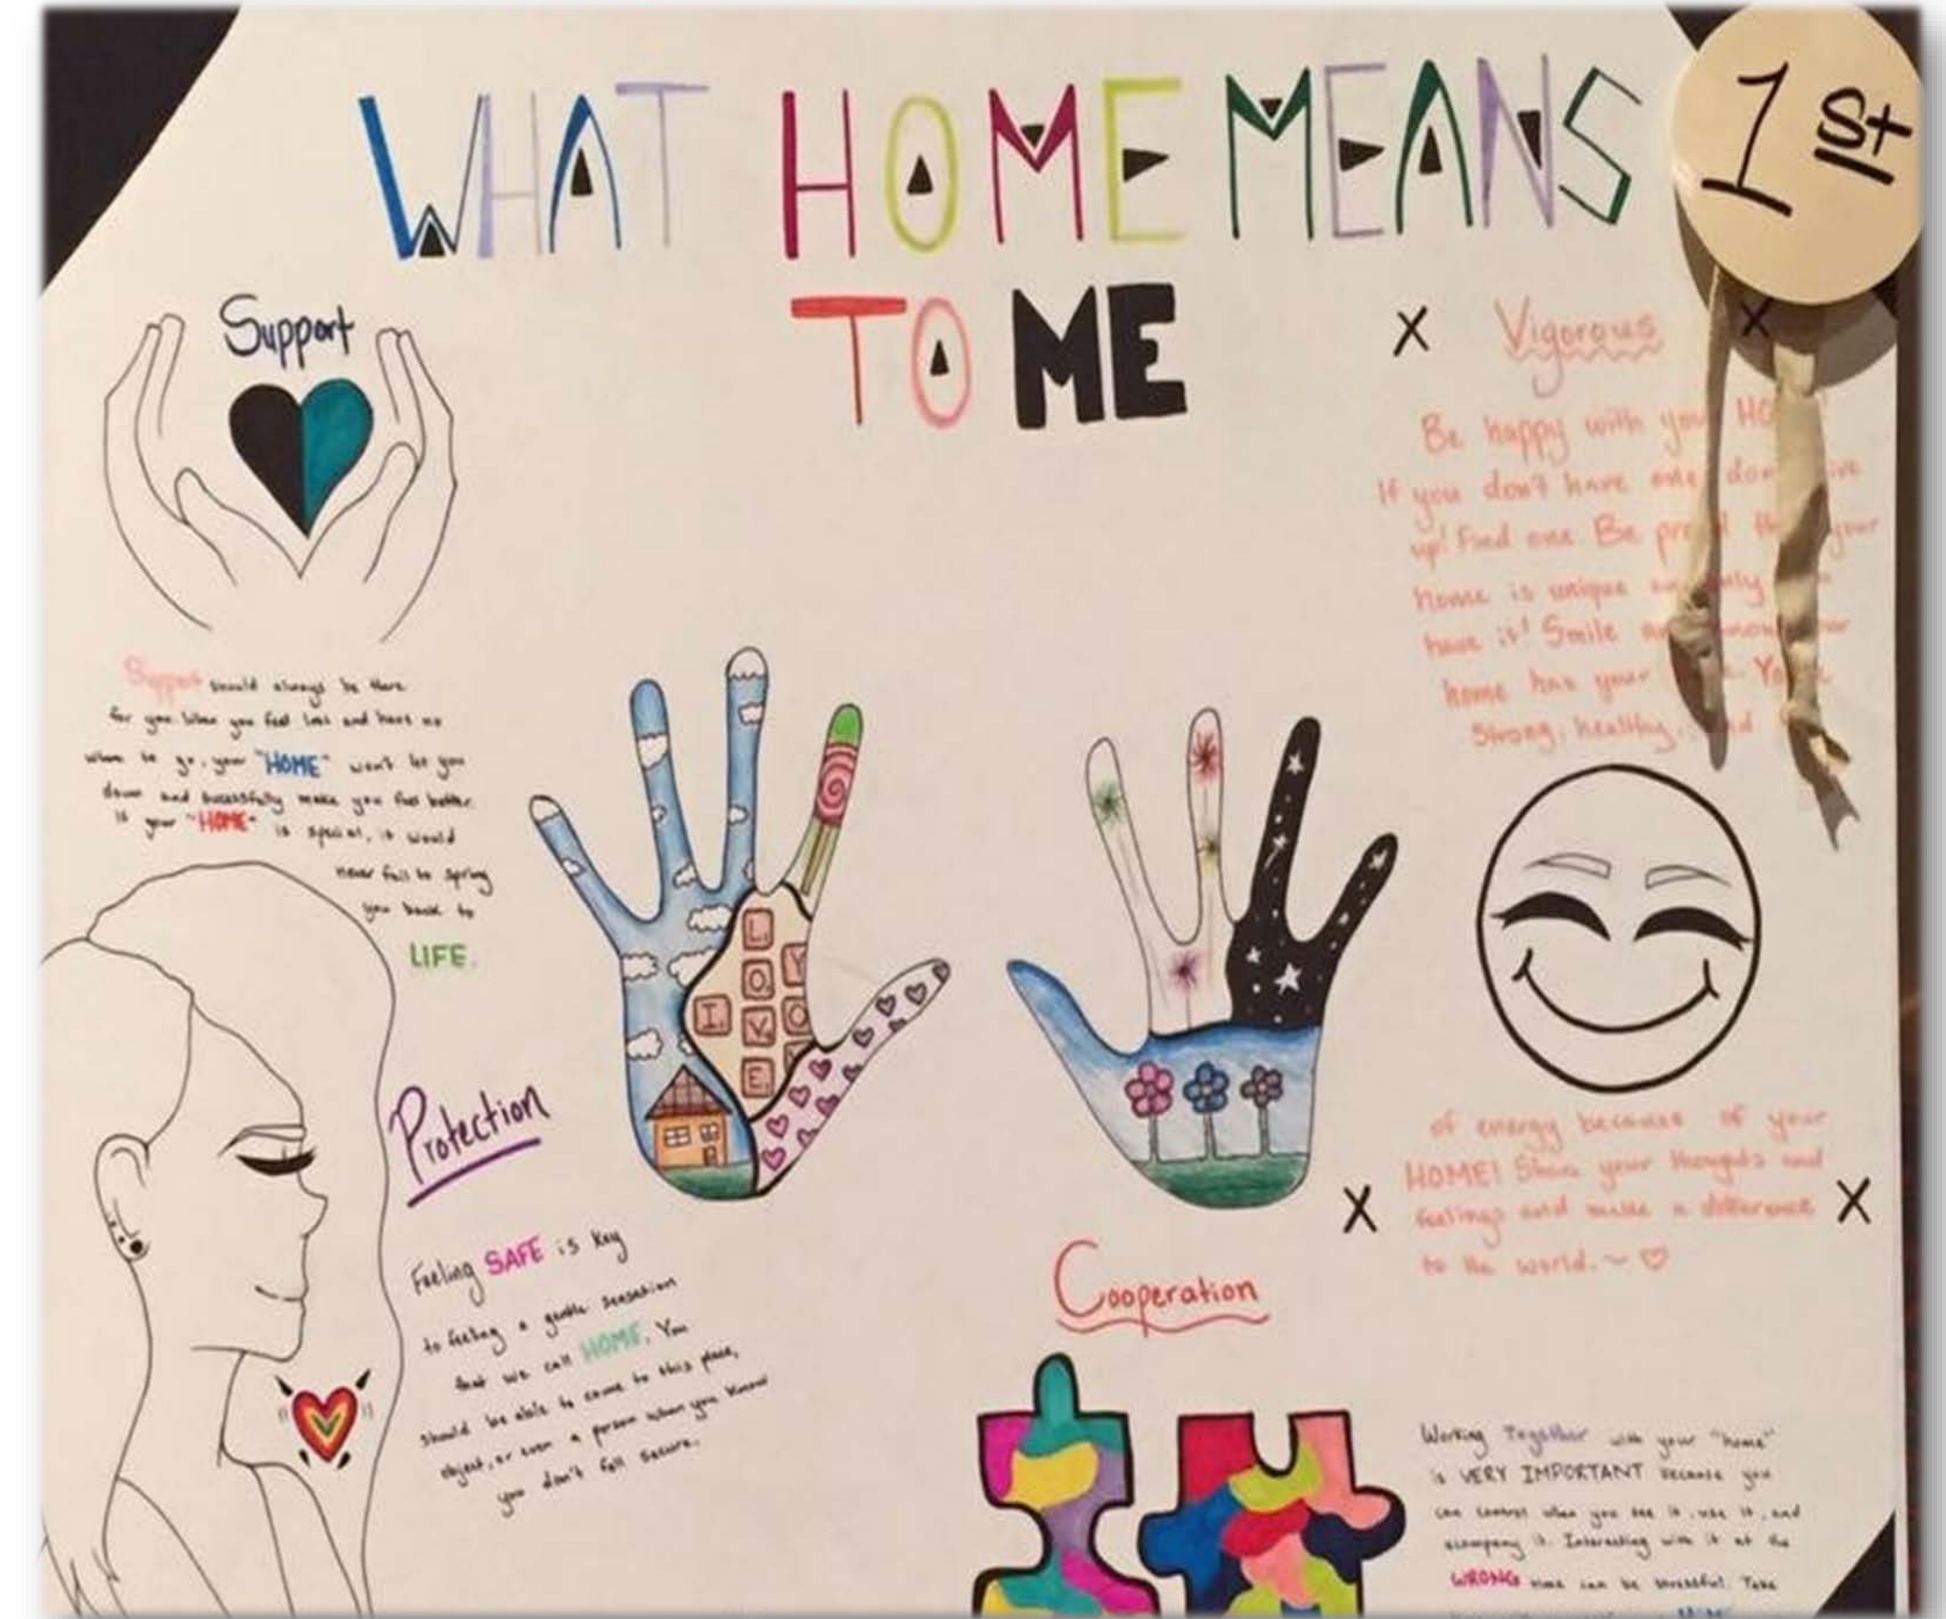 WHAT HOME MEANS
TO ME
1st
Support
Support should always be there
for you. When you feel loss and have no
where to go, your "HOME" won't let you
down and sucessfully make you feel better.
If your "HOME" is special, it would
never fail to spring
you back to
LIFE.
Protection
Feeling SAFE is key
to feeling a gentle sensation
that we call HOME. You
should be able to come to this place,
object, or even a person when you know
you don't fell secure.
LOVE
I
YO
Vigorous
Be happy with you HO
If you don't have one don ive
up! Find one. Be pro th your
home is unique an nly
have it! Smile an now ur
home has your . Yo
Strong, healthy, nd
of energy because of your
HOME! Share your thoughts and
feelings and make a difference
to the world. ~ ♡
X X
X X
Cooperation
Working Together with your "home"
is VERY IMPORTANT because you
can control when you see it, use it, and
accompany it. Interacting with it at the
WRONG time can be stressful. Take